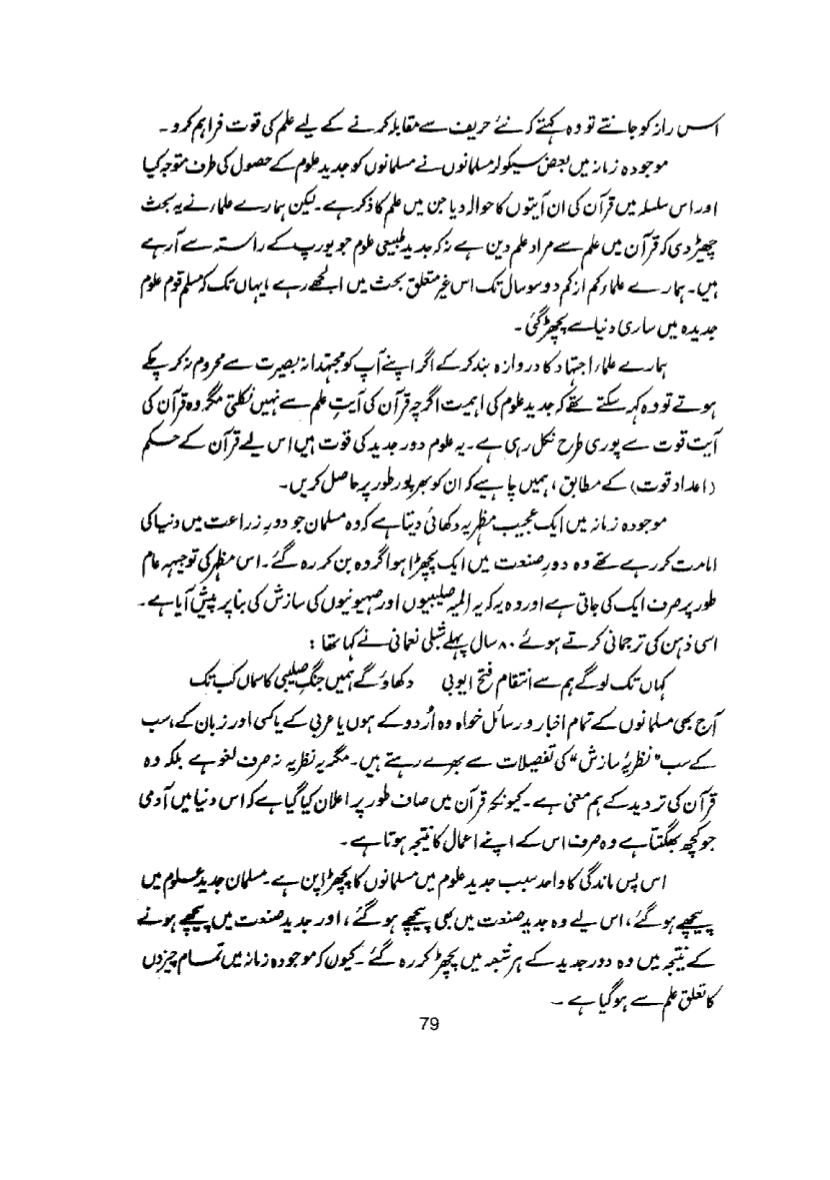 اس راز کو جانتے تو وہ کہتے کہ نئے حریف سے مقابلہ کرنے کے لیے علم کی قوت فراہم کرو۔
موجودہ زمانہ میں بعض سیکولر مسلمانوں نے مسلمانوں کو جدید علوم کے حصول کی طرف متوجہ کیا
اور اس سلسلہ میں قرآن کی ان آیتوں کا حوالہ دیا جن میں علم کا ذکر ہے۔ لیکن ہمارے علماء نے یہ بحث
چھیڑ دی کہ قرآن میں علم سے مراد علم دین ہے نہ کہ جدید طبیعی علوم جو یورپ کے راستہ سے آرہے
ہیں۔ ہمارے علماء کم از کم دو سو سال تک اس غیر متعلق بحث میں الجھے رہے، یہاں تک کہ مسلم قوم علوم
جدیدہ میں ساری دنیا سے پچھڑ گئی۔
ہمارے علماء اجتہاد کا دروازہ بند کر کے اگر اپنے آپ کو مجتہدانہ بصیرت سے محروم نہ کر چکے
ہوتے تو وہ کہہ سکتے تھے کہ جدید علوم کی اہمیت اگرچہ قرآن کی آیتِ علم سے نہیں نکلتی مگر وہ قرآن کی
آیت قوت سے پوری طرح نکل رہی ہے۔ یہ علوم دور جدید کی قوت ہیں اس لیے قرآن کے حکم
(اعداد قوت) کے مطابق، ہمیں چاہیے کہ ان کو بھرپور طور پر حاصل کریں۔
موجودہ زمانہ میں ایک عجیب مظہر یہ دکھائی دیتا ہے کہ وہ مسلمان جو دورِ زراعت میں دنیا کی
امامت کر رہے تھے وہ دورِ صنعت میں ایک پچھڑا ہوا گروہ بن کر رہ گئے۔ اس مظہر کی توجیہہ عام
طور پر صرف ایک کی جاتی ہے اور وہ یہ کہ یہ المیہ صلیبیوں اور صہیونیوں کی سازش کی بنا پر پیش آیا ہے۔
اسی ذہن کی ترجمانی کرتے ہوئے ۸۰ سال پہلے شبلی نعمانی نے کہا تھا :
کہاں تک لوگے ہم سے انتقام فتح ایوبی دکھاؤ گے ہمیں جنگ صلیبی کا سماں کب تک
آج بھی مسلمانوں کے تمام اخبار و رسائل خواہ وہ اُردو کے ہوں یا عربی کے یا کسی اور زبان کے، سب
کے سب "نظریۂ سازش" کی تفصیلات سے بھرے رہتے ہیں۔ مگر یہ نظریہ نہ صرف لغو ہے بلکہ وہ
قرآن کی تردید کے ہم معنی ہے۔ کیونکہ قرآن میں صاف طور پر اعلان کیا گیا ہے کہ اس دنیا میں آدمی
جو کچھ بھگتتا ہے وہ صرف اس کے اپنے اعمال کا نتیجہ ہوتا ہے۔
اس پس ماندگی کا واحد سبب جدید علوم میں مسلمانوں کا پچھڑا پن ہے۔ مسلمان جدید علوم میں
پیچھے ہو گئے، اس لیے وہ جدید صنعت میں بھی پیچھے ہو گئے، اور جدید صنعت میں پیچھے ہونے
کے نتیجہ میں وہ دور جدید کے ہر شعبہ میں پچھڑ کر رہ گئے۔ کیوں کہ موجودہ زمانہ میں تمام چیزوں
کا تعلق علم سے ہو گیا ہے۔
79